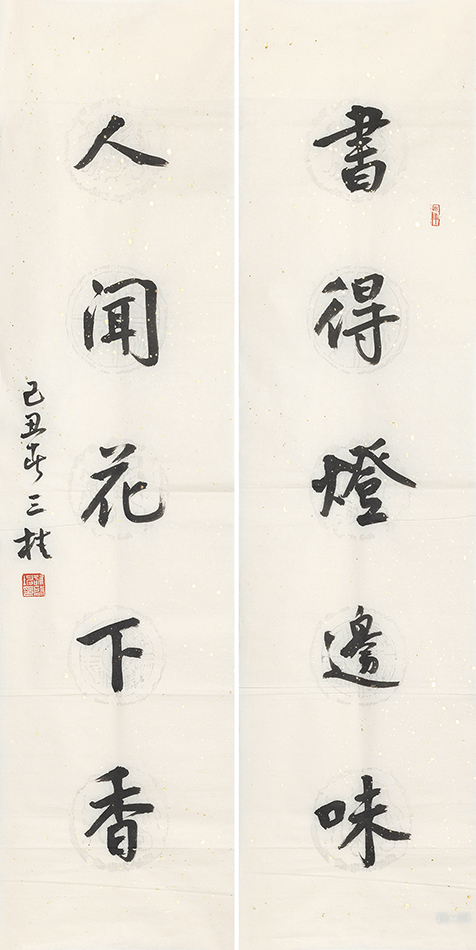 書得燈邊味
人闻花下香
己丑春三桂